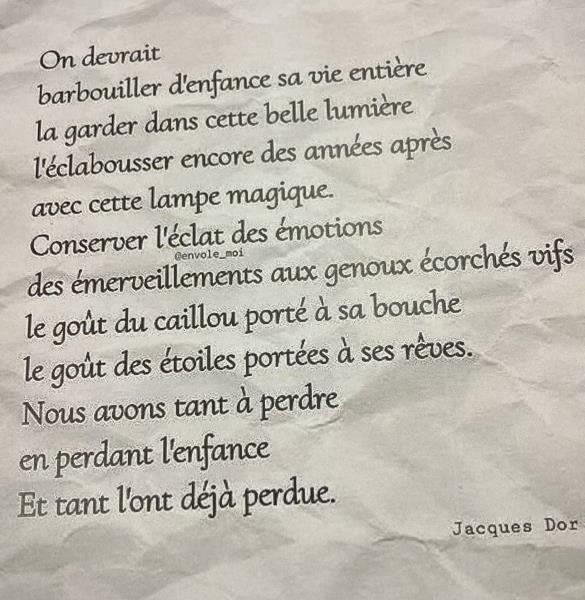 On devrait
barbouiller d'enfance sa vie entière
la garder dans cette belle lumière
l'éclabousser encore des années après
avec cette lampe magique.
Conserver l'éclat des émotions
@envole_moi
des émerveillements aux genoux écorchés vifs
le goût du caillou porté à sa bouche
le goût des étoiles portées à ses rêves.
Nous avons tant à perdre
en perdant l'enfance
Et tant l'ont déjà perdue.
Jacques Dor